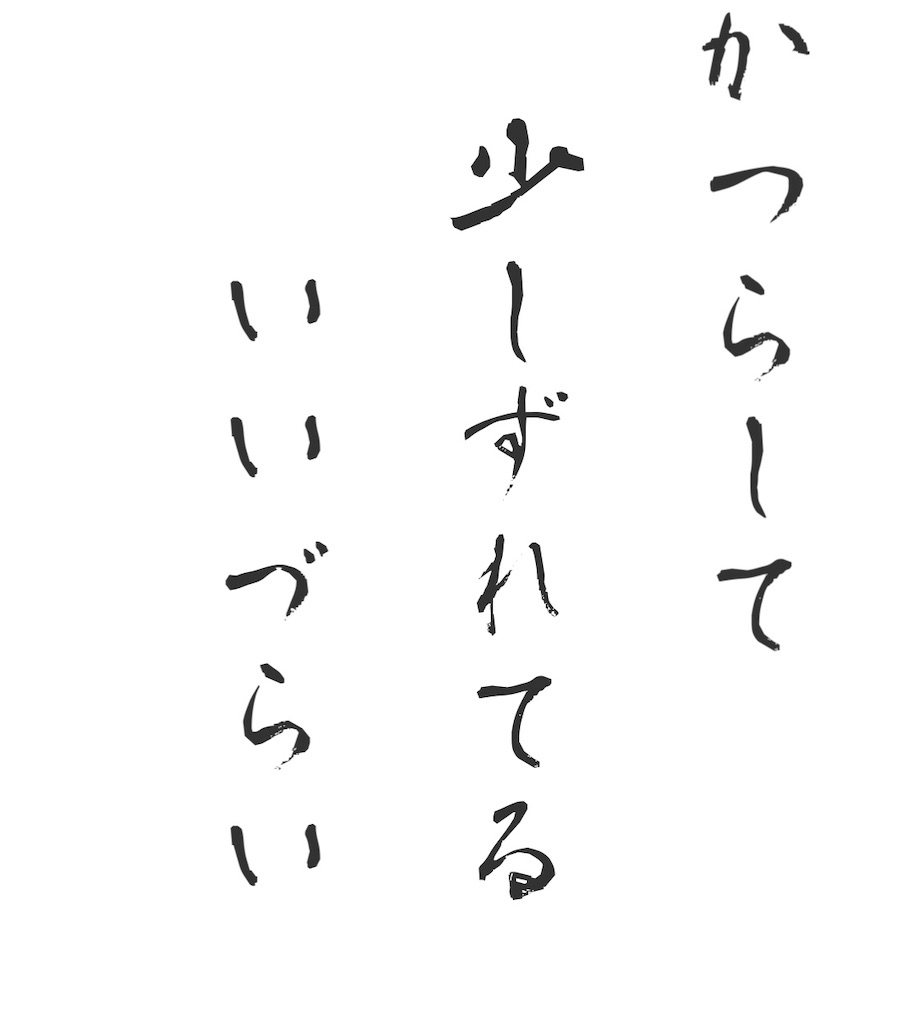 かつらして
少しずれてる
いいづらい